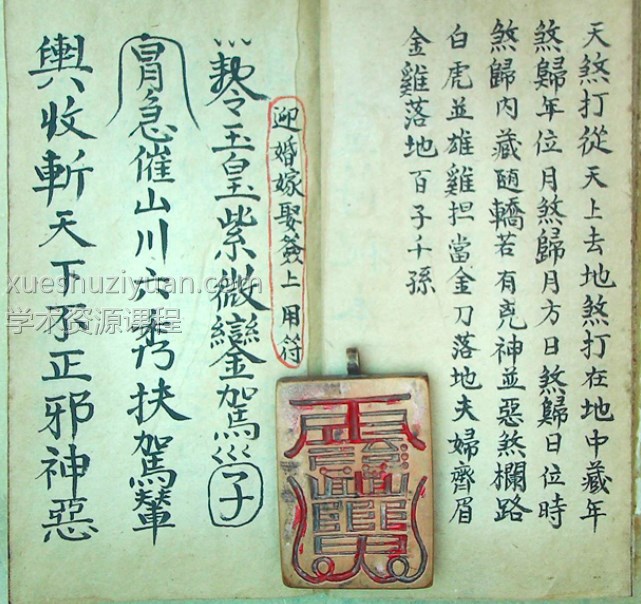 天煞打從天上去地煞打在地中藏年
煞歸年位月煞歸月方日煞歸日位時
煞歸内藏随轎若有兇神並惡煞欄路
白虎並雄雞担當金刀落地夫婦齊眉
金雞落地百子千孫
迎婚嫁娶簽上用符
玉皇紫微鑾駕
子
急催山川六秀扶駕輦
輿收斬天下不正邪神惡
xueshuziyuan.com
学术资源课程